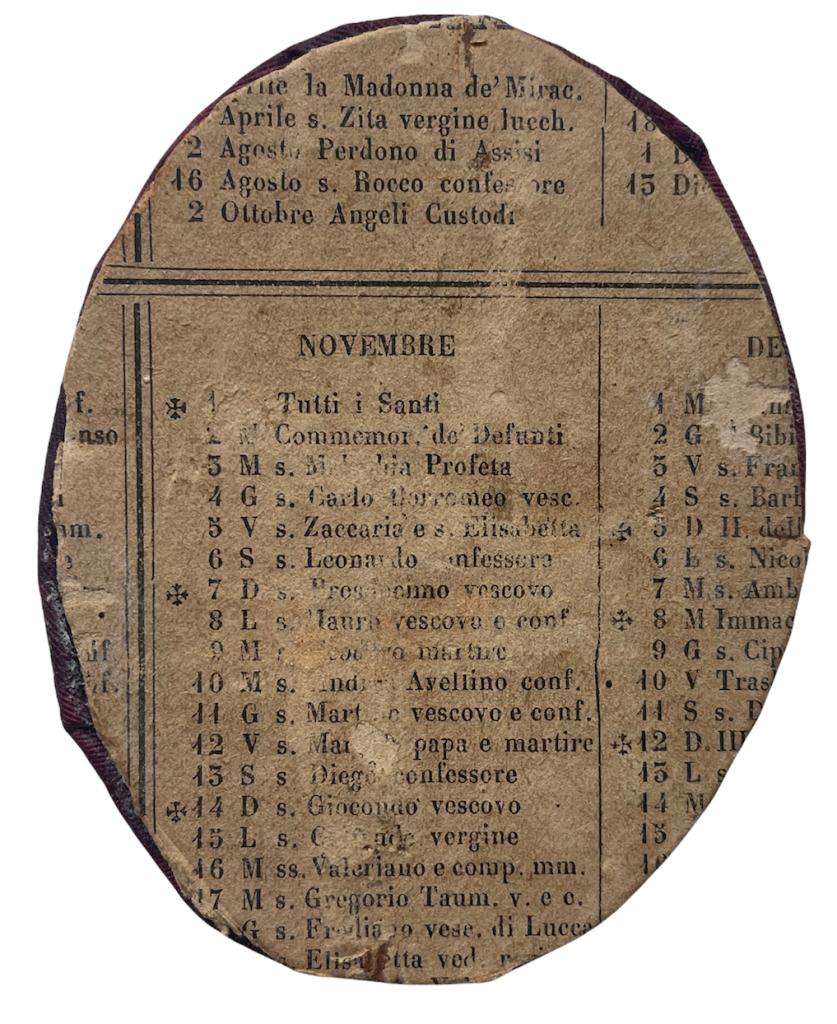 la Madonna de' Mirac.
Aprile s. Zita vergine lucch.
2 Agosto Perdono di Assisi
16 Agosto s. Rocco confessore
2 Ottobre Angeli Custodi
18
1 D
13 Di
NOVEMBRE
✠ 1 Tutti i Santi
2 M Commemor. de' Defunti
3 M s. Profeta
4 G s. Carlo Borromeo vesc.
5 V s. Zaccaria e s. Elisabetta
6 S s. Leonardo confessore
✠ 7 D s. Prosdocimo vescovo
8 L s. Mauro vescovo e conf.
9 M martire
10 M s. Andrea Avellino conf.
11 G s. Martino vescovo e conf.
12 V s. papa e martire
13 S s Diego confessore
✠ 14 D s. Giocondo vescovo
15 L s. vergine
16 M ss. Valeriano e comp. mm.
17 M s. Gregorio Taum. v. e c.
G s. Frediano vesc. di Lucca
s. Elisabetta ved.
DE
1 M
2 G Bibi
3 V s. Fran
4 S s. Barb
✠ 5 D II. dell
6 L s. Nicol
7 M s. Amb
✠ 8 M Immac
9 G s. Cip
10 V Tras
11 S s. D
✠ 12 D. III
13 L s
14 M
15
f.
nso
mm.